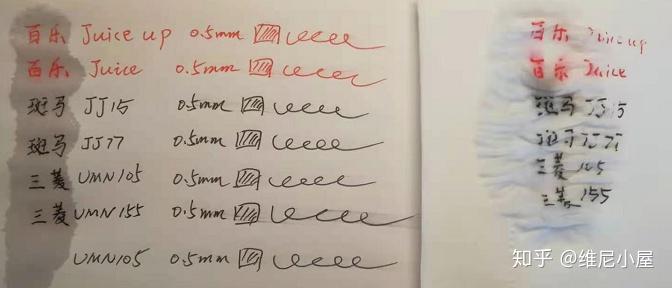 百乐 Juice up 0.5mm
百乐 Juice 0.5mm
斑马 JJ15 0.5mm
斑马 JJ77 0.5mm
三菱 UMN105 0.5mm
三菱 UMN155 0.5mm
UMN105 0.5mm
百乐 Juice up
百乐 Juice
斑马 JJ15
斑马 JJ77
三菱 105
三菱 155
知乎 @维尼小屋